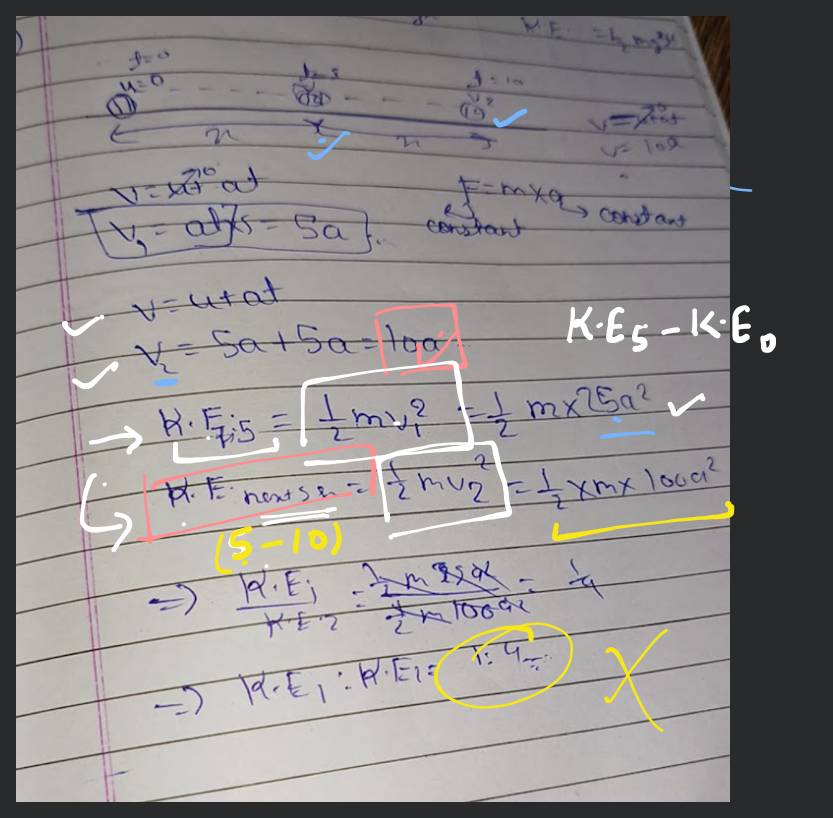 t=0
u=0
t=5
t=10
V2
v=u+at
v=10a
x x
v=u+at
V1 = at×5 = 5a
F=m×a
constant constant
v=u+at
V2 = 5a+5a=10a
K·E5 - K·E0
K·E 5 = 1/2 mv1² = 1/2 m×25a²
K·E next 5s = 1/2 mv2² = 1/2 ×m× 100a²
(5-10)
=> K·E1 / K·E2 = 1/2 m 25a² / 1/2 m 100a² = 1/4
=> K·E1 : K·E2 = 1:4